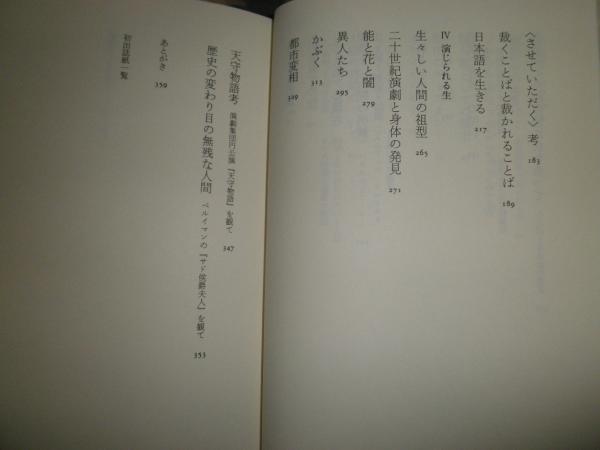 〈させていただく〉考 183
裁くことばと裁かれることば 189
日本語を生きる 217
Ⅳ 演じられる生
生々しい人間の祖型 265
二十世紀演劇と身体の発見 271
能と花と闇 279
異人たち 295
かぶく 313
都市変相 329
天守物語考 演劇集団円公演『天守物語』を観て 347
歴史の変わり目の無残な人間 ベルイマンの『サド侯爵夫人』を観て 353
あとがき 359
初出誌紙一覧